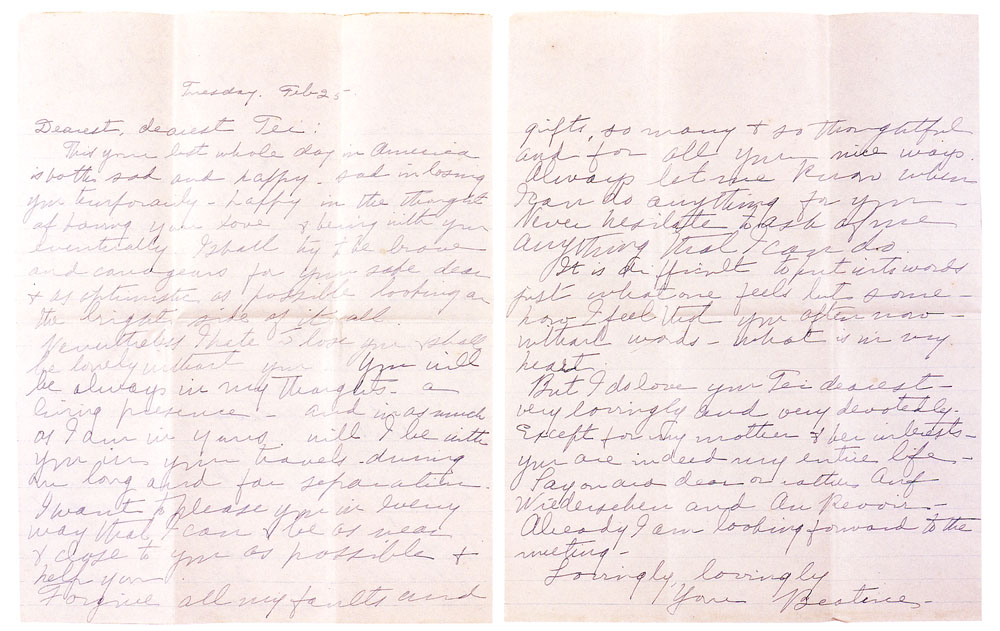 Tuesday. Feb 25
Dearest, dearest Tei:
This your last whole day in America
is both sad and happy - sad in losing
you temporarily - happy in the thought
of having your love & being with you
eventually. I shall try to be brave
and courageous for your sake dear
& as optimistic as possible looking on
the bright side of it all.
Nevertheless I hate to lose you & shall
be lonely without you. You will
be always in my thoughts - a
living presence - and in as much
as I am in yours, will I be with
you in your travels - during
our long and far separation.
I want to please you in every
way that I can & be as near
& close to you as possible &
help you
Forgive all my faults and
gifts, so many & so thoughtful
and for all your nice ways.
Always let me know when
I can do anything for you -
Never hesitate to ask of me
anything that I can do.
It is difficult to put into words
just what one feels but some-
how I feel that you often know -
without words - what is in my
heart.
But I do love you Tei dearest -
very lovingly and very devotedly.
Except for my mother & her interests -
you are indeed my entire life -
Sayonara dear or rather Auf
Wiedersehen and Au Revoir -
Already I am looking forward to the
meeting -
Lovingly, lovingly
Your Beatrice -